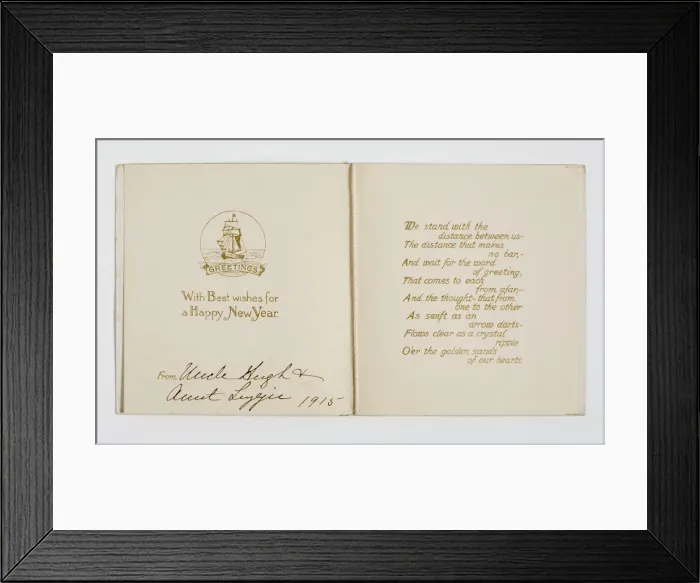 GREETINGS
With Best wishes for
a Happy New Year.
From Uncle Hugh &
Aunt Lizzie 1915
We stand with the
distance between us-
The distance that makes
no bar,-
And wait for the word
of greeting,
That comes to each
from afar,-
And the thought- that from
one to the other
As swift as an
arrow darts-
Flows clear as a crystal
ripple
O'er the golden sands
of our hearts